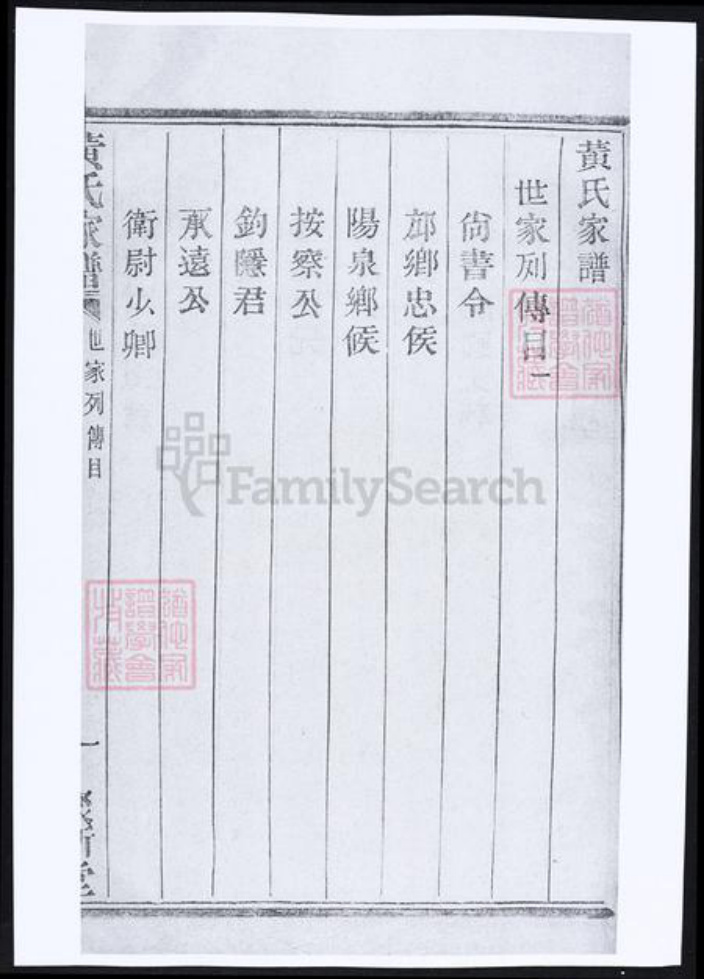 黃氏家譜
世家列傳目一
尙書令
邟鄉忠侯
陽泉鄉侯
按察公
釣隱君
承遠公
衛尉少卿
黃氏家譜
世家列傳目
一
FamilySearch